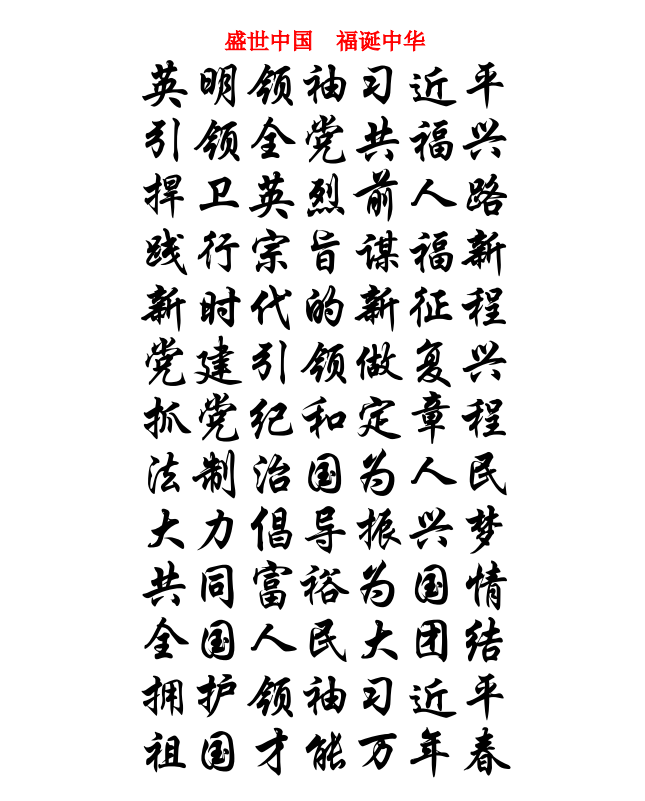 盛世中国　福诞中华
英明领袖习近平
引领全党共福兴
捍卫英烈前人路
践行宗旨谋福新
新时代的新征程
党建引领做复兴
抓党纪和定章程
法制治国为人民
大力倡导振兴梦
共同富裕为国情
全国人民大团结
拥护领袖习近平
祖国才能万年春